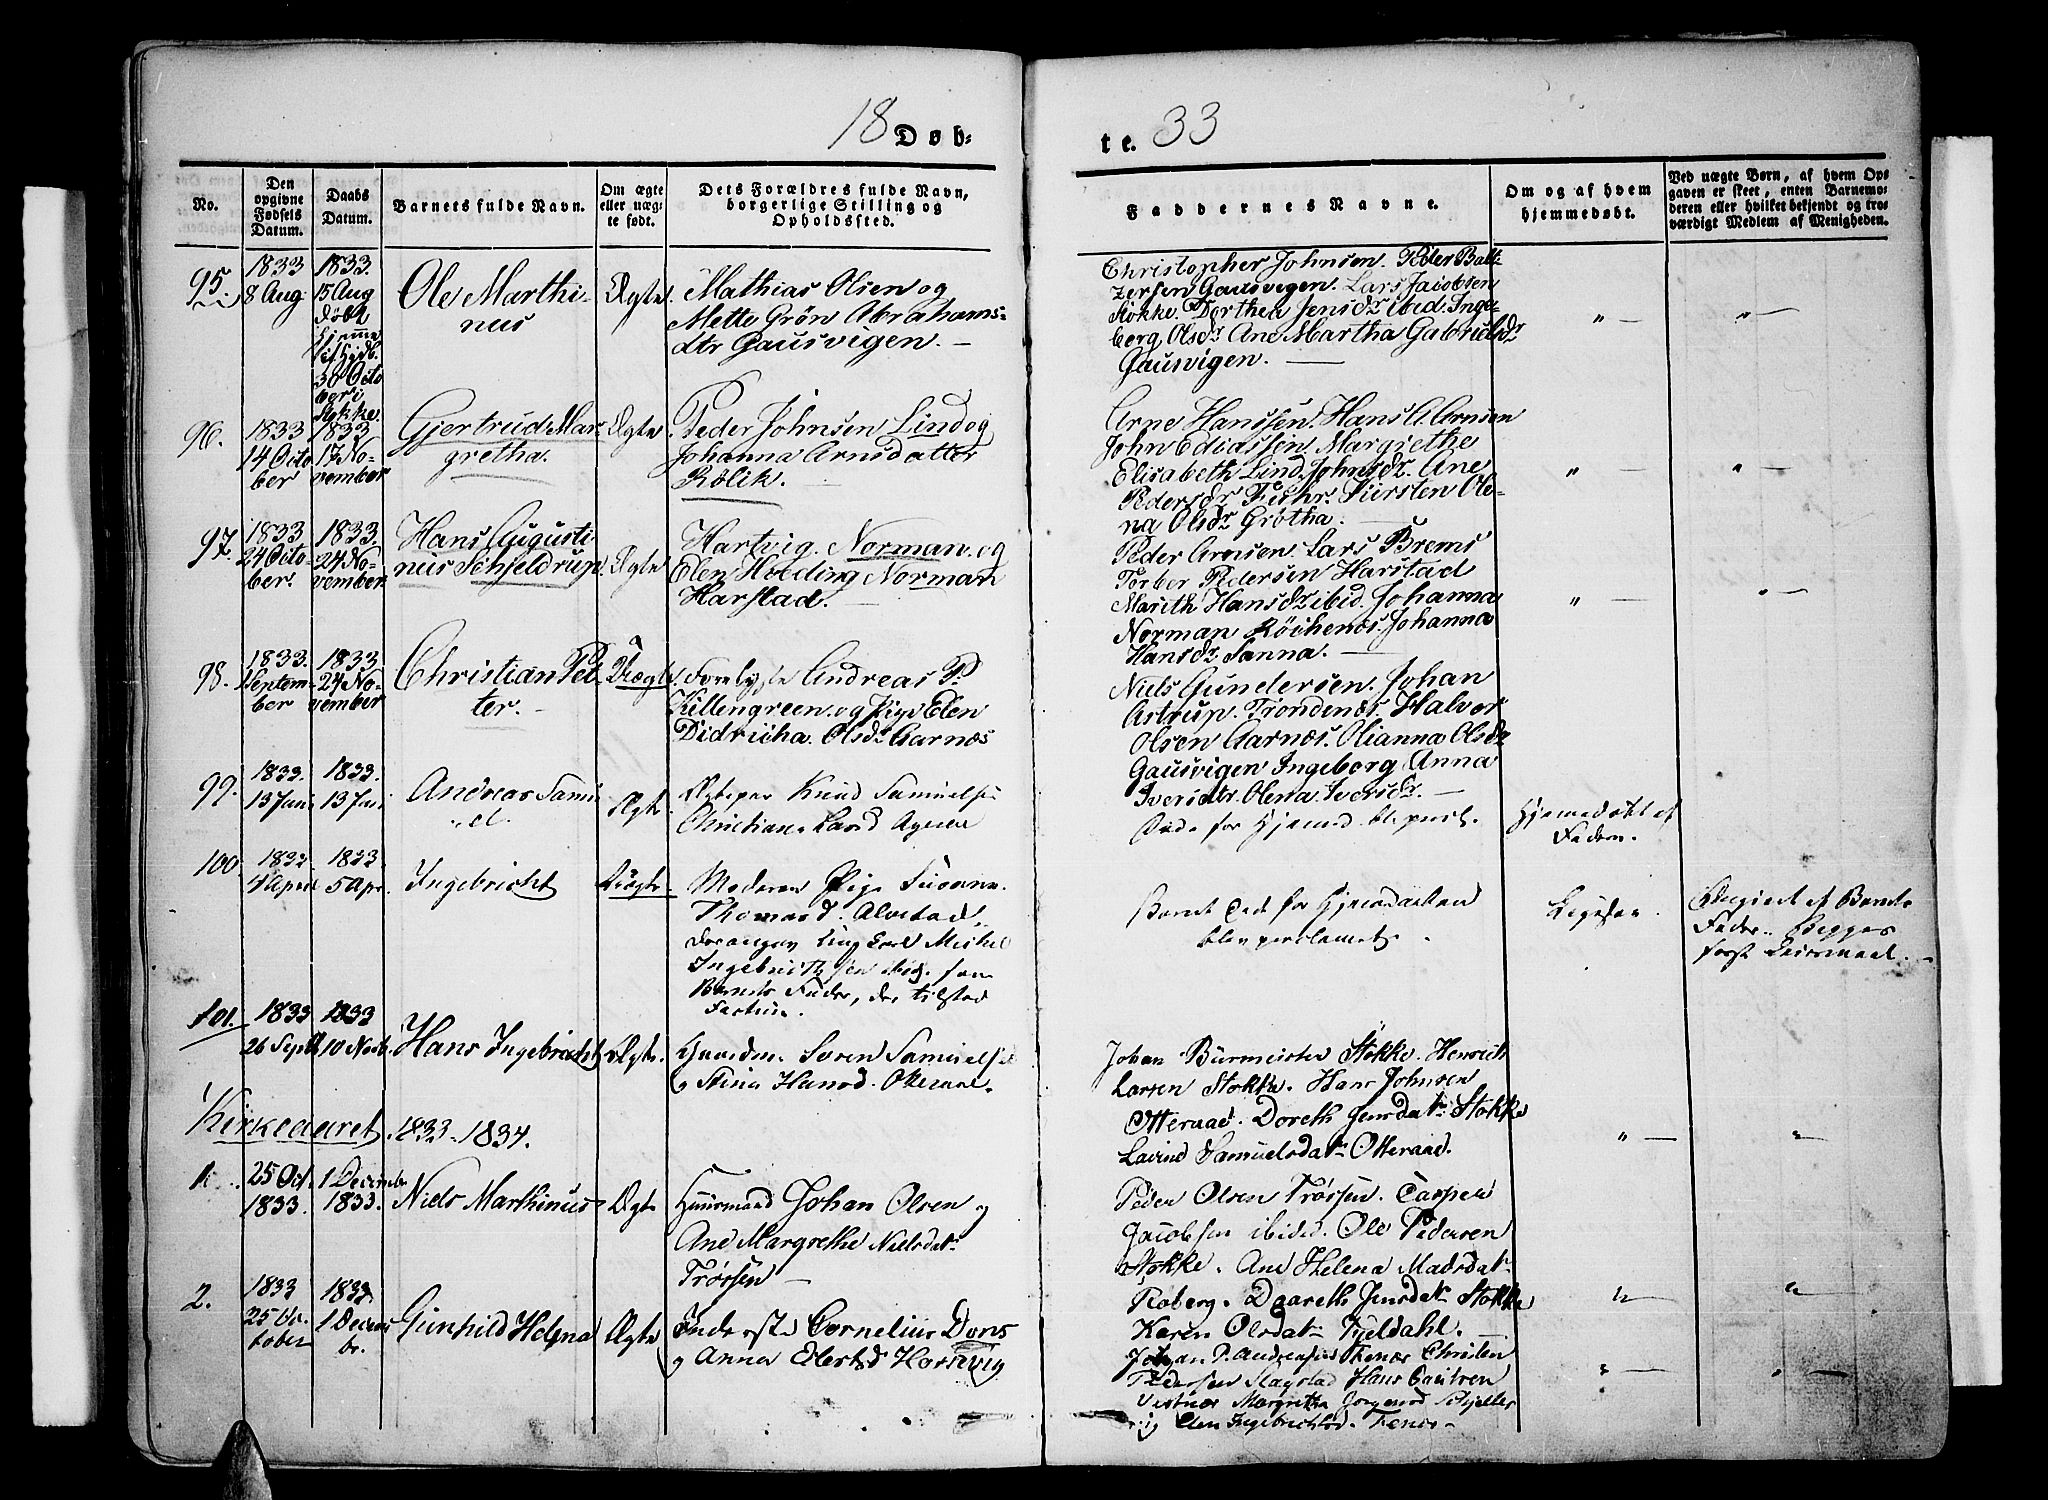 18 Døb-
te. 33
No.
Den
opgivne
Fødsels
Datum.
Daabs
Datum.
Barnets fulde Navn.
Om ægte
eller uæg-
te født.
Dets Forældres fulde Navn,
borgerlige Stilling og
Opholdssted.
Faddernes Navne.
Om og af hvem
hjemmedøbt.
Ved uægte Børn, af hvem Op-
gaven er skeet, enten Barnemo-
deren eller hvilket bekjendt og tro-
værdigt Medlem af Menigheden.
95.
1833
8 Aug.
1833.
15 Aug
døbt
hjemme
30 Octo
ber i
Stokke.
Ole Marthi-
nus
Ægte.
Mathias Olsen og
Mette Grön Abrahams-
dtr Gausvigen. —
Christopher Johnsen. Peder Balt-
zersen Gausvigen. Lars Jacobsen
Stokke. Dorthea Jensdr ibid. Inge-
berg Olsdr. Ane Martha Gabrielsdr
Gausvigen. —
" —
" —
96.
1833
14 Octo
ber
1833
17 No-
vember
Gjertrud Mar-
gretha.
Ægte
Peder Johnsen Lind og
Johanna Arnsdatter
Rölik. —
Arne Hanssen. Hans A. Arnsen
John Ediassen. Margrethe
Elisabeth Lind. Johnsdr. Ane
Pedersdr Kirsten Ole-
na Olsdr Grötha. —
" —
" —
97.
1833
24 Octo-
ber.
1833.
24 No-
vember
Hans Augusti-
nus Schjeldrup.
Ægte
Hartvig Norman og
Elen Holding Norman
Harstad. —
Peder Arnsen. Lars Brems
Torber Pedersen Harstad
Marith Hansdr ibid. Johanna
Norman Röchenes. Johanna
Hansdr Sanna. —
" —
" —
98.
1833.
Septem-
ber
1833
24 No-
vember
Christian Pet-
ter. —
Uægte.
Andreas P.
Killengreen og Pige Elen
Didricha Olsdr Aarnæs
Niels Gundersen. Johan
Astrup. Trondenæs. Halvor
Olsen Aarnæs. Olianna Olsdr
Gausvigen Ingeborg Anna
Iversdtr. Olena Iversdr. —
99.
1833.
13 Juni
1833.
13 Juni
Andreas Samu-
el.
Ægte
Ægtepar Knud Samuelsen
Christiane Larsd
Døde før Hjemmed.
Hjemmedøbt af
Faderen.
100
1833
4 April
1833
5 Apr.
Ingebricht
Uægte
Moderen Pige Susanne
Thomasd. Alvestad,
Michel
Ingebrigtsen ibid. som
Barnets Fader, der tilstod
Factum.
Barnet døde før Hjemmedaaben
blev proclameret.
af Barnets
Fader. Begges
første Leiermaal.
101.
1833
26 Septb
1833
10 Novb.
Hans Ingebricht
Ægte.
Gaardm. Søren Samuelsen
og Stina Hansd. Otteraae
Johan Burmeister Stokke. Henrich
Larsen Stokke. Hans Johnsen
Otteraad. Doreth Jensdatr Stokke
Lavind Samuelsdatr Otteraad.
" —
"
Kirkeaaret 1833-1834.
1.
25 Oct.
1833.
1 Decembr
1833.
Niels Marthinus
Ægte
Huusmand Johan Olsen og
Ane Margrethe Nielsdatr
Trøssen —
Peder Olsen Trøssen. Casper
Jacobsen ibid. Ole Pedersen
Stokke. Ane Helena Madsdatr
Roberg. Daareth Jensdatr Stokke
Karen Olsdatr Fjeldahl. —
" —
"
2.
1833
25 Oc-
tober
1833
1 Decem
br.
Gunhild Helena
Ægte
Inderste Cornelius Dons
og Anna Elertsd Harevig
Johan P. Andreasen Trænæs Christen
Pedersen Slagstad Hans
Margretha Jørgensd
Elen Ingebrichtsd. Trænæs —
" —
" —